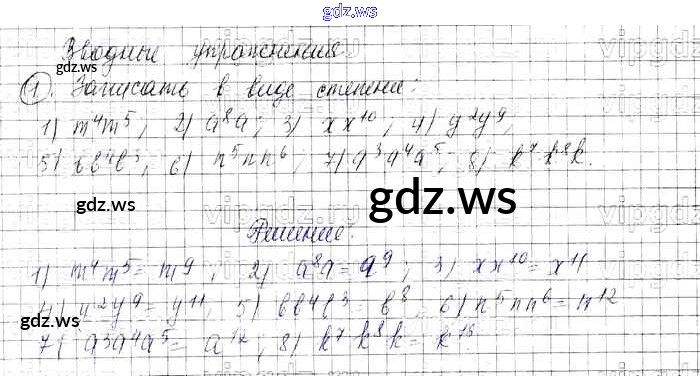 gdz.ws
Вводные упражнения.
gdz.ws
1. Записать в виде степени:
1) m⁴m⁵; 2) a⁸a; 3) xx¹⁰; 4) y²y⁹;
5) bb⁴b³; 6) n⁵nn⁶; 7) a³a⁴a⁵; 8) k⁷k⁸k.
gdz.ws
gdz.ws
Решение:
1) m⁴m⁵ = m⁹; 2) a⁸a = a⁹; 3) xx¹⁰ = x¹¹
4) y²y⁹ = y¹¹, 5) bb⁴b³ = b⁸, 6) n⁵nn⁶ = n¹²
gdz.ws
7) a³a⁴a⁵ = a¹²; 8) k⁷k⁸k = k¹⁶.
gdz.ws